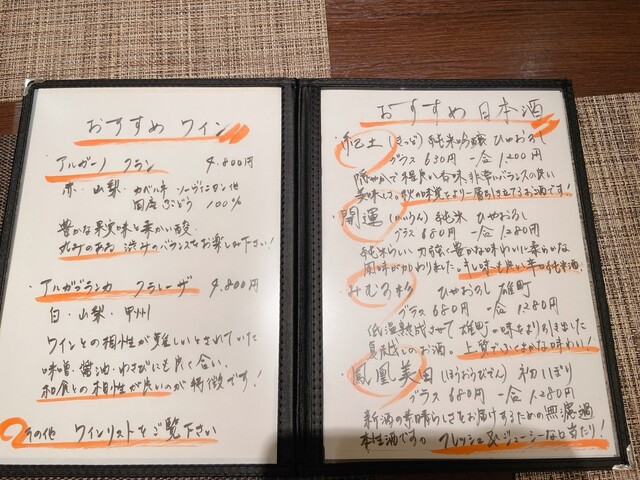 おすすめ ワイン
アルガーノ クラン 4.800円
赤・山梨・カベルネ ソーヴィニヨン他
国産ぶどう 100%
豊かな果実味と柔かい酸
丸みのある 渋みのバランスをお楽しみ下さい!
アルガブランカ クラレーザ 4.800円
白・山梨・甲州
ワインとの相性が難しいとされていた
味噌・醤油・わさびにも良く合い、
和食との相性が良いのが特徴です!
その他 ワインリストをご覧下さい
おすすめ 日本酒
・紀土(きっど)純米吟醸 ひやおろし
グラス 630円 一合 1.200円
穏やかで程良い香味 非常にバランスの良い
美味しさ。秋の味覚をより一層引き立てるお酒です!
・開運(かいうん)純米 ひやおろし
グラス 680円 一合 1.280円
純米らしい力強く豊かな味わいに柔らかな
風味が加わりました。
・みむろ杉 ひやおろし 雄町
グラス 680円 一合 1.280円
低温熟成させて 雄町の味をより引き出した
夏越しのお酒。上質で
味わい!
・鳳凰美田(ほうおうびでん)初しぼり
グラス 680円 一合 1.280円
新酒の素晴らしさをお届けするための無濾過
本生酒です。フレッシュ&ジューシーな口当たり!